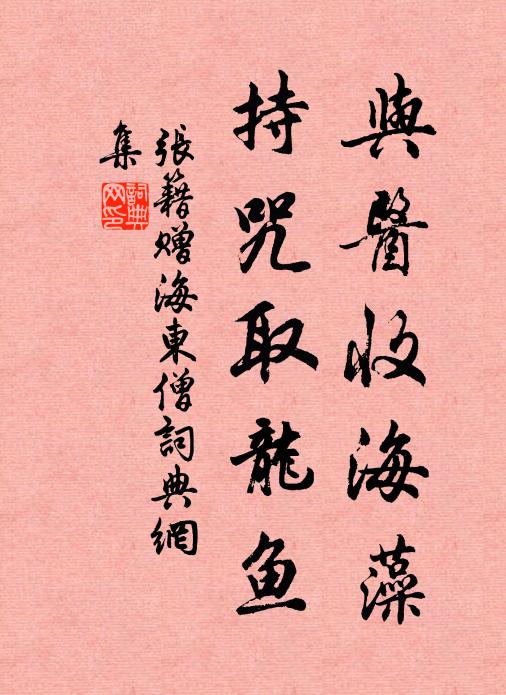 與醫收海藻
持咒取龍魚
張籍贈海東僧詞典網
集
詞典网印